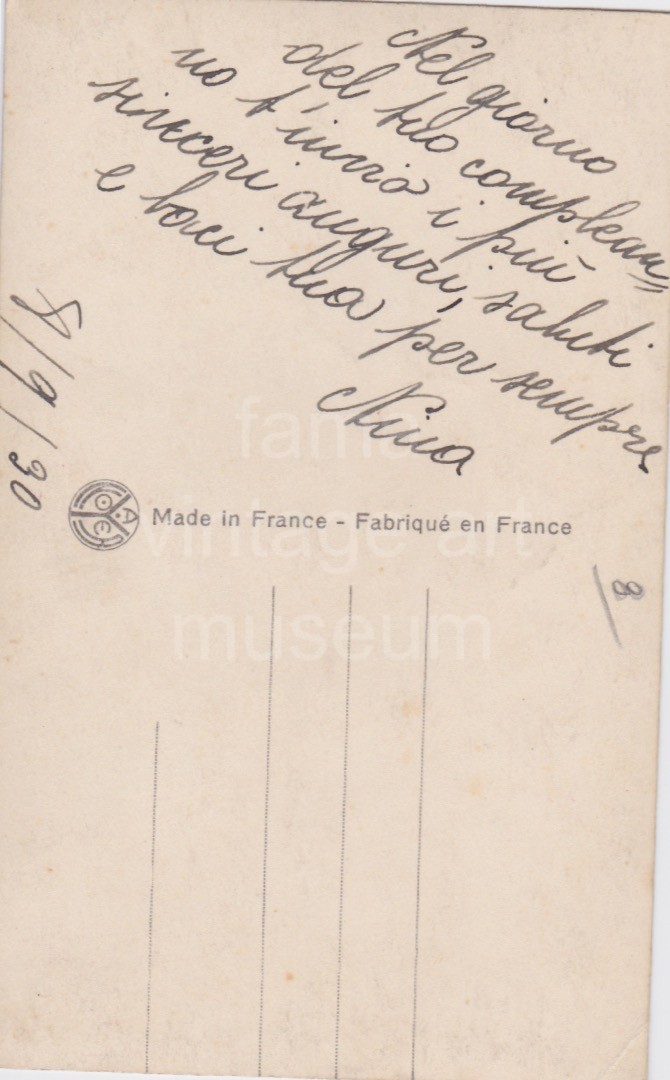 Nel giorno
del tuo complean=
no t'invio i più
sinceri auguri, saluti
e baci tua per sempre
Nina
8/9/30
Made in France - Fabriqué en France
8
fama
vintage art
museum